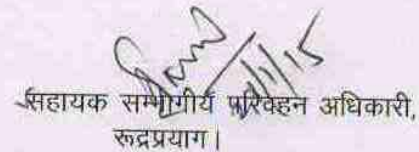 सहायक सम्भागीय परिवहन अधिकारी,
रूद्रप्रयाग।